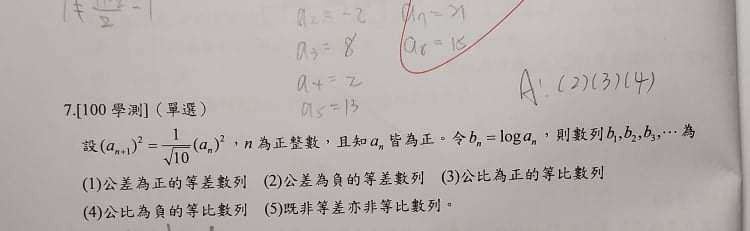 a₂ = -2
a₃ = 8
a₆ = 15
a₄ = 2
A: (2)(3)(4)
a₅ = 13
7.[100 學測]（單選）
設(aₙ₊₁)² = 1/√10 (aₙ)²，n 為正整數，且知 aₙ 皆為正。令 bₙ = log aₙ，則數列 b₁,b₂,b₃,⋯ 為
(1)公差為正的等差數列 (2)公差為負的等差數列 (3)公比為正的等比數列
(4)公比為負的等比數列 (5)既非等差亦非等比數列。